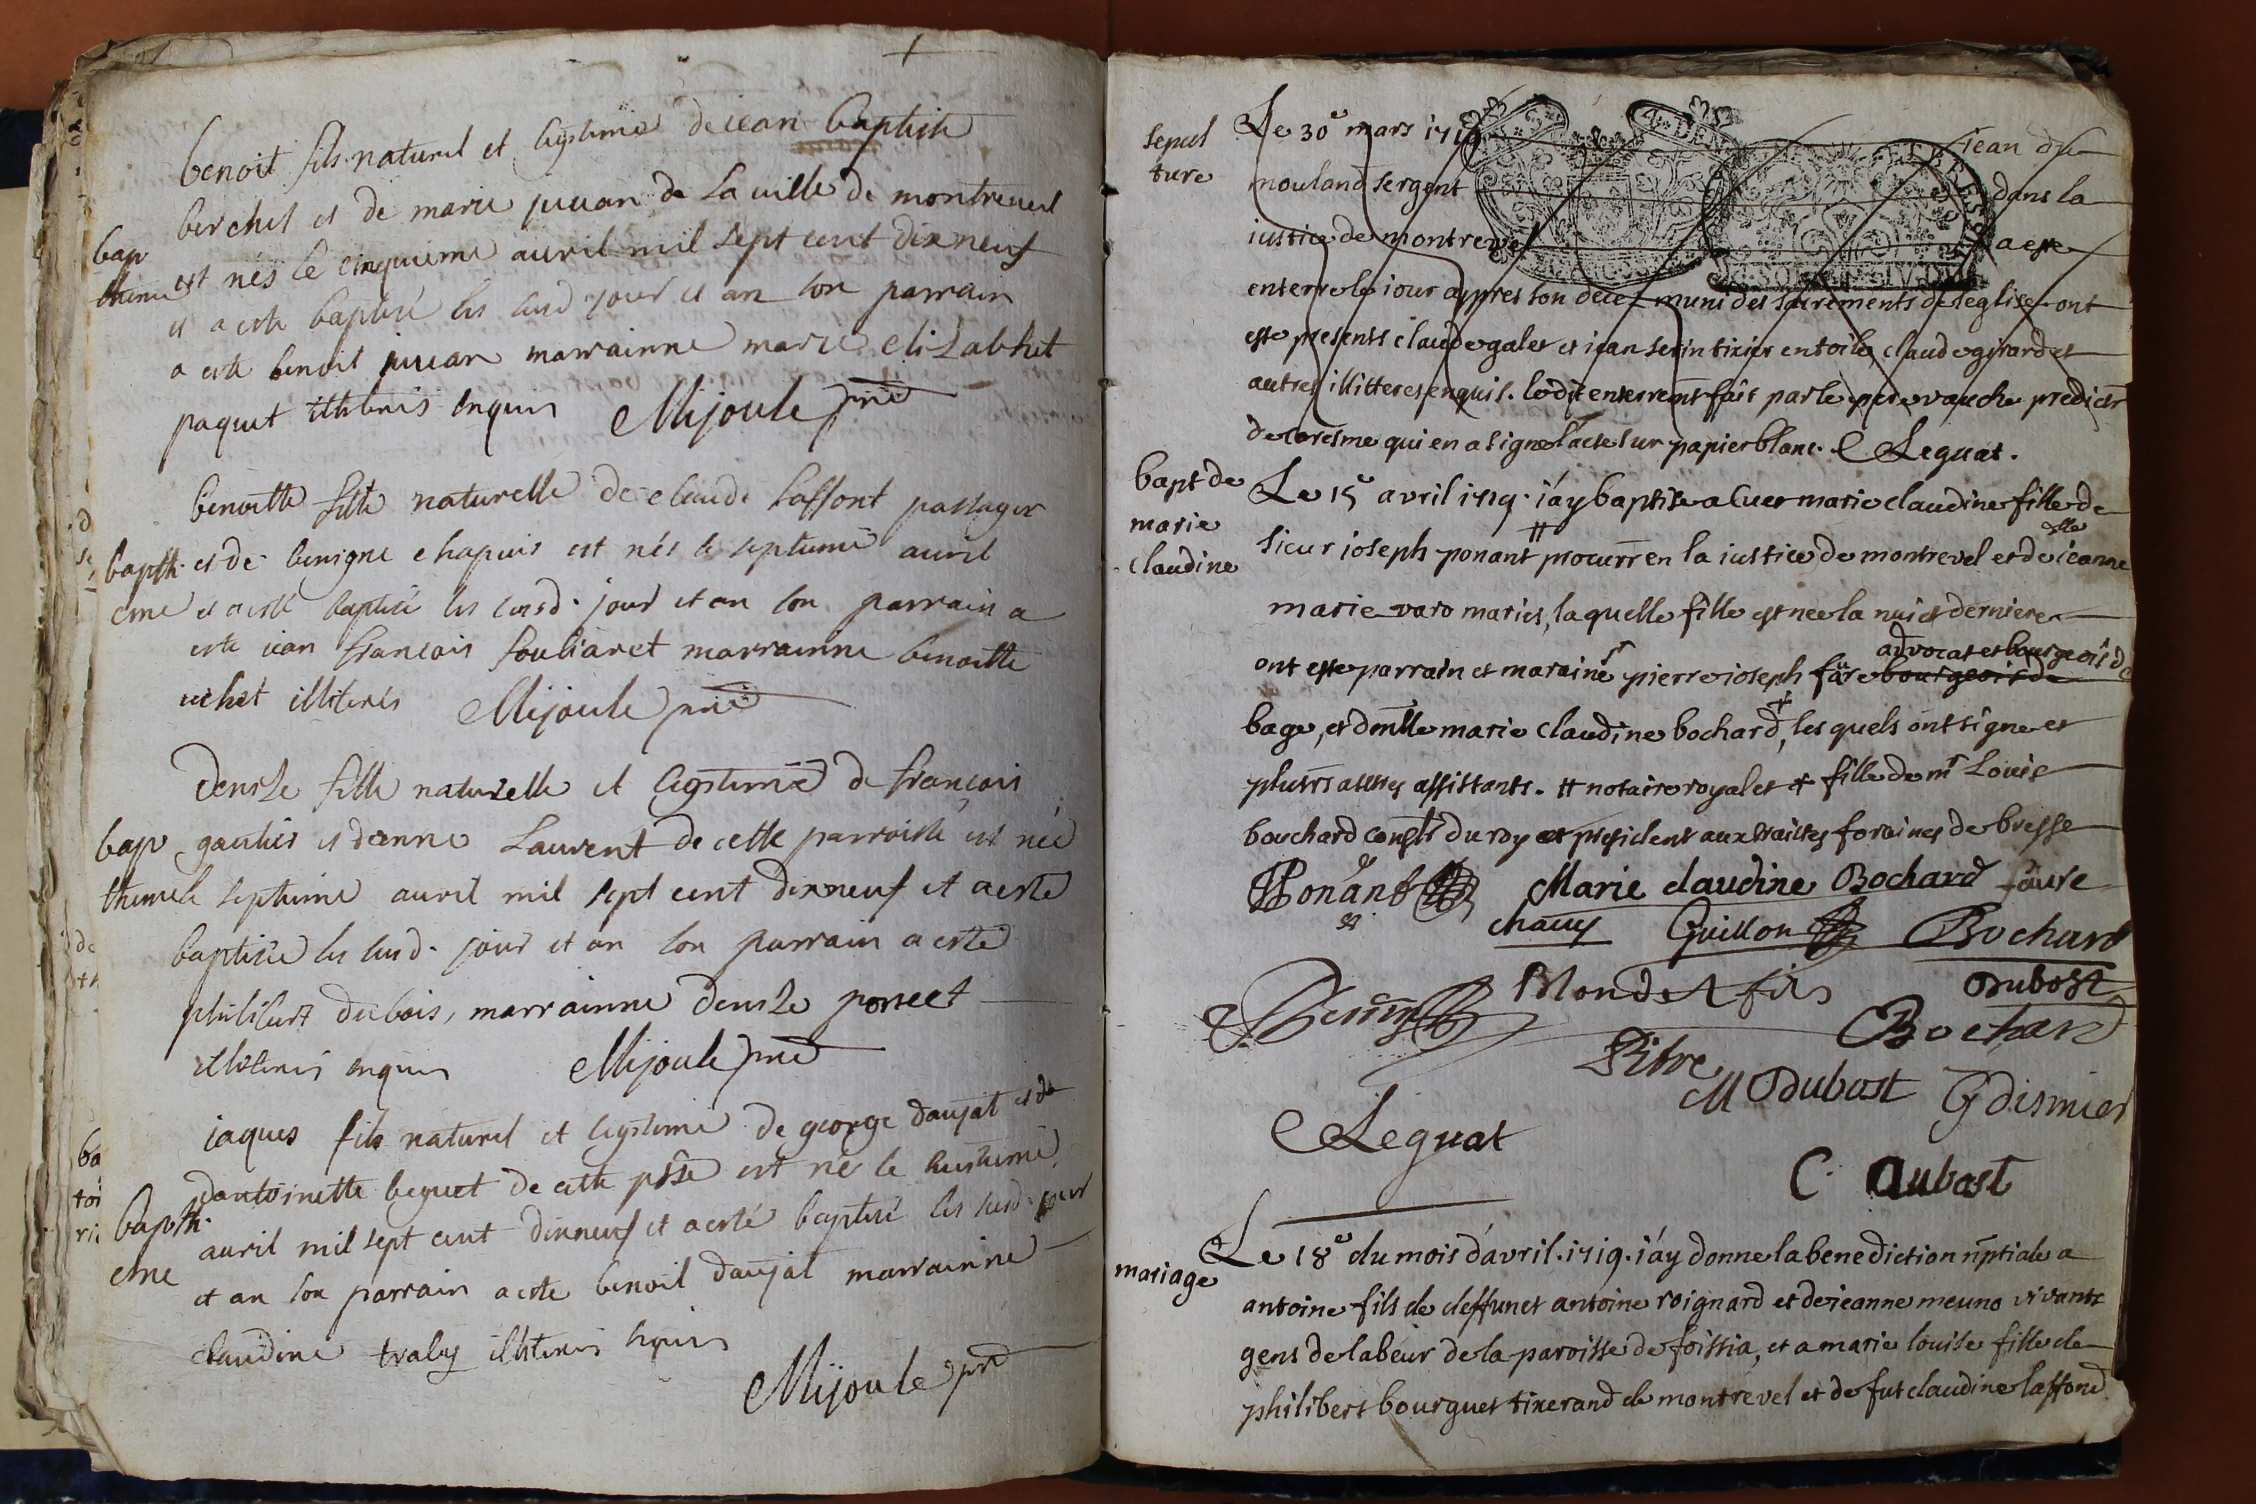 benoit fils naturel et legitime de iean baptiste
berchet et de marie juuan de la uille de montreuel
bap
teme
est nés le cinquieme auril mil sept cent dixneuf
et a este baptisé les susd jour et an son parrain
a este benoit juuan marrainne marie elizabhet
paquet illiterés enquis Mijoule pre
benoitte fille naturelle de claude laffont passager
bapth
eme
et de benigne chapuis est nés le septieme auril
et a esté baptisé les susd. jour et an son parrain a
este iean francois souliaret marrainne benoitte
uchet illiterés Mijoule pre
denise fille naturelle et legitime de francois
bap
theme
gautier et danne Laurent de cette parroisse est née
le septieme auril mil sept cent dixneuf et a esté
baptisée les susd. jour et an son parrain a esté
philibert dubois, marrainne denise poncet
illiterés enquis Mijoule pre
iaques fils naturel et legitime de george daujat et de
dantoinette bequet de cette psse est né le huitieme
bapth.
eme
auril mil sept cent dixneuf et a esté baptisé les susd. jour
et an son parrain a este benoit daujat marrainne
claudine traly illiterés enquis
Mijoule pre
sepul
ture
Le 30e mars 1719 jean du
mouland sergent dans la
iustice de montrevel a este
enterre le iour appres son decez muni des sacrements de leglise ont
este presents claude galet et iean serin tixier en toile, claude girard et
autres illitteres enquis. ledit enterremt fait par le pere vauche predictr
de caresme qui en a signe lacte sur papier blanc. Leguat.
bapt de
marie
claudine
Le 15e avril 1719. i'ay baptise a lues marie claudine fille de
sieur ioseph ponant # procurr en la iustice de montrevel et de delle ieanne
marie varo maries, laquelle fille est nee la nuict derniere
ont este parrain et maraine sr pierre ioseph faure bourgeois de advocat et bourgeois de
bage, et dmlle marie claudine bochard +, lesquels ont signe et
plusrs autres assistants. # notaire royal et + fille de mr Louis
bouchard conseilr du roy et president aux traittes foraines de bresse
Ponant Marie claudine Bochard faure
chaury Guillon Bochard
Perrin Mondet fils Dubost
Bochard
Pitre
M Dubost G dismier
Leguat
C. Aubost
mariage
Le 18e du mois d'avril. 1719. i'ay donne la benediction nptiale a
antoine fils de deffunct antoine roignard et de ieanne meuno vivants
gens de labeur de la paroisse de foissia, et a marie louise fille de
philibert bourguet tixerand de montrevel et de fut claudine laffond